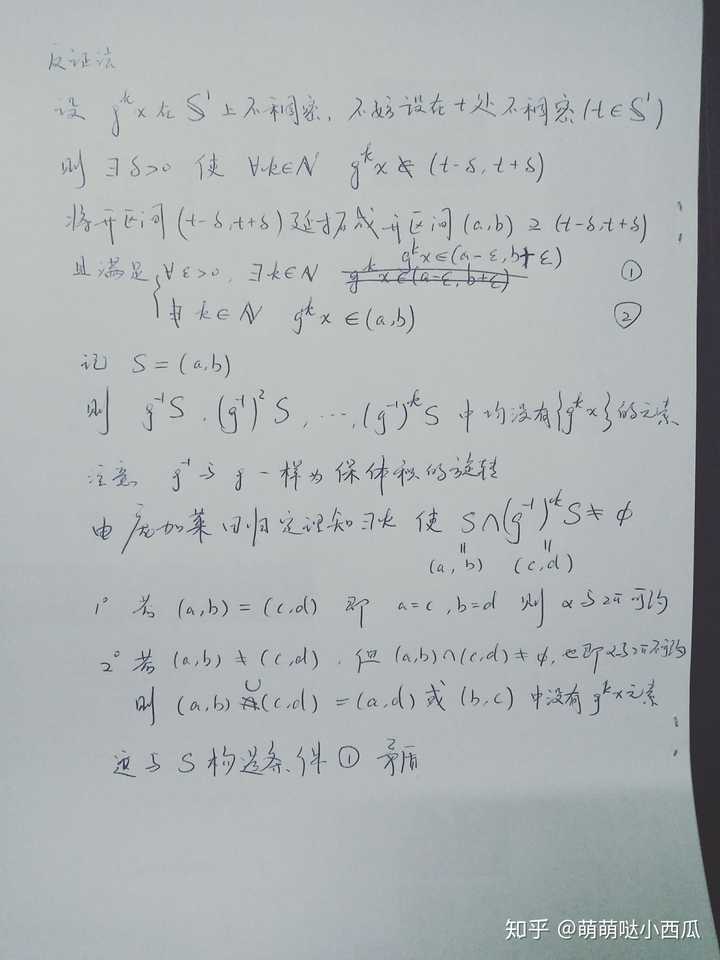 反证法
设 g^k x 在 S¹ 上不稠密，不妨设在 t 处不稠密 (t∈S¹)
则 ∃δ>0 使 ∀k∈N g^k x ∉ (t-δ, t+δ)
将开区间 (t-δ, t+δ) 延拓成开区间 (a,b) ⊇ (t-δ, t+δ)
且满足 { ∀ε>0, ∃k∈N g^k x∈(a-ε, b+ε) ①
∄ k∈N g^k x ∈(a,b) ②
记 S = (a,b)
则 g⁻¹S, (g⁻¹)²S, ..., (g⁻¹)^k S 中均没有{g^k x}的元素
注意 g⁻¹ 与 g 一样为保体积的旋转
由庞加莱回归定理知 ∃k 使 S∩(g⁻¹)^k S ≠ φ
(a, b) (c, d)
1° 若 (a,b) = (c,d) 即 a=c, b=d 则 α与2π可约
2° 若 (a,b) ≠ (c,d), 但 (a,b)∩(c,d) ≠ φ, 也即α与2π不可约
则 (a,b)∪(c,d) = (a,d) 或 (b,c) 中没有 g^k x 元素
这与 S 构造条件 ① 矛盾
知乎 @萌萌哒小西瓜